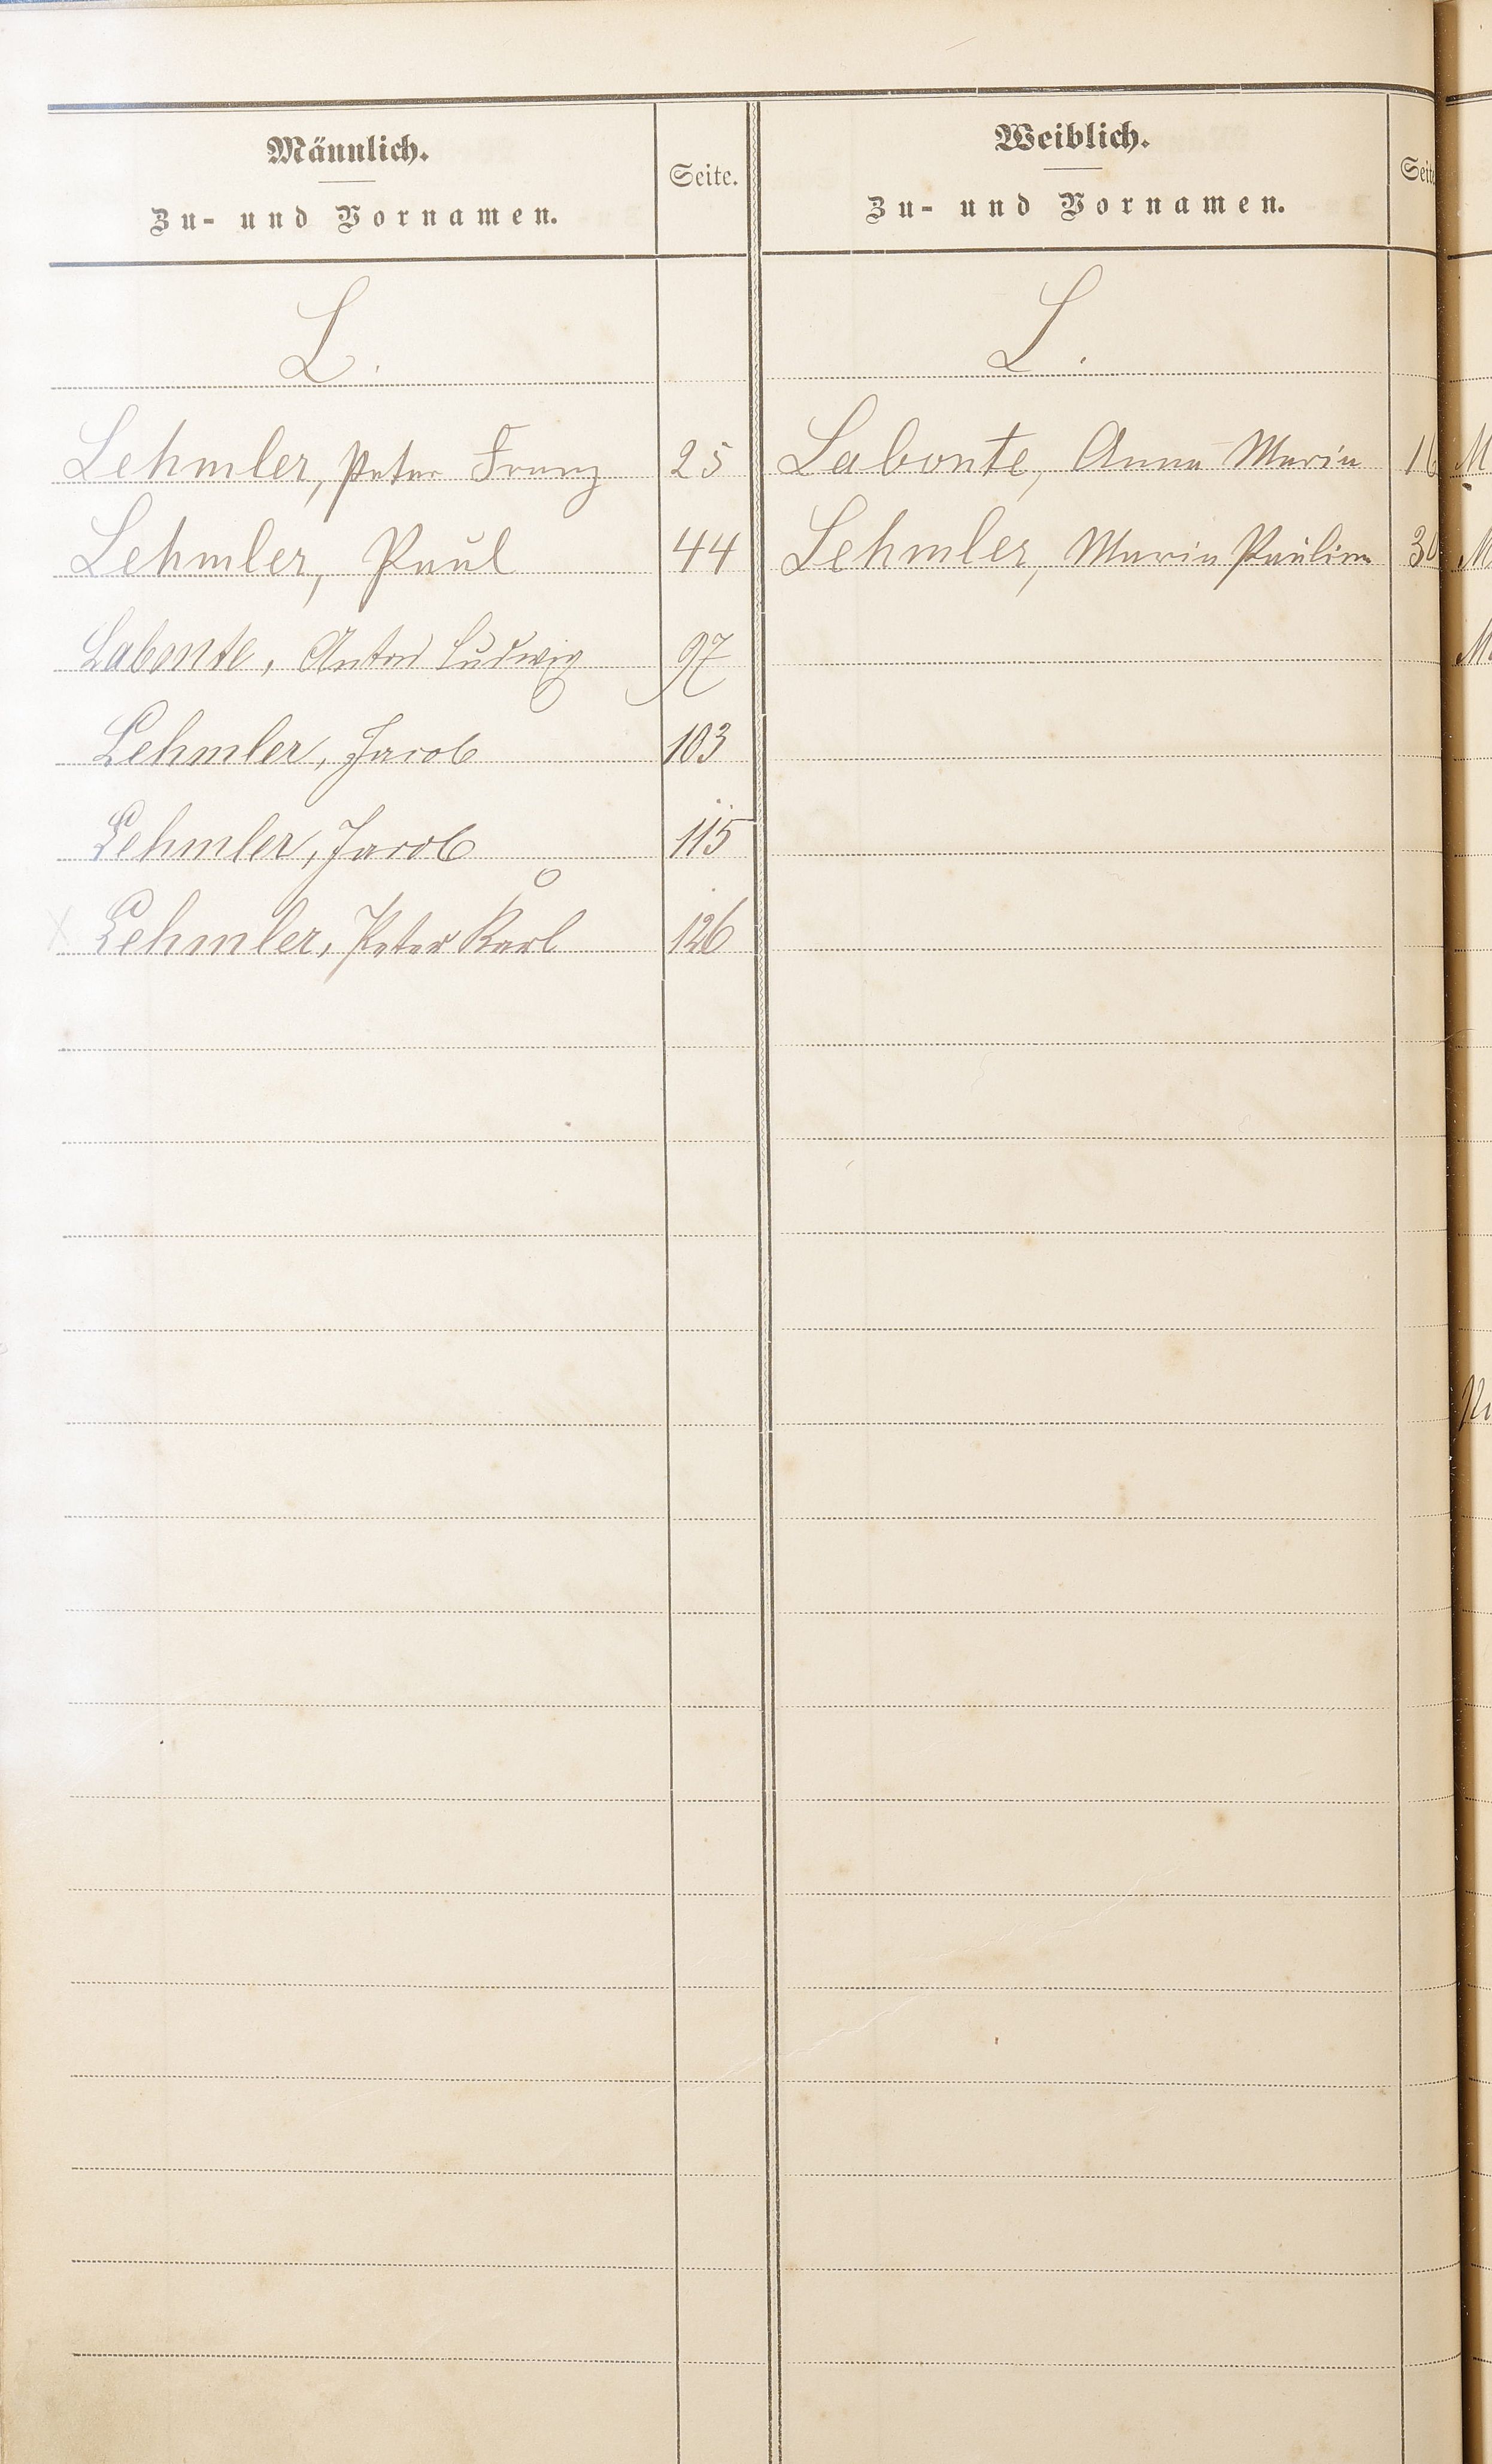 Männlich.
Zu- und Vornamen.
Seite.
L.
Lehmler, Peter Franz 25
Lehmler, Paul 44
Labonte, Anton Ludwig 97
Lehmler, Jacob 103
Lehmler, Jacob 115
Lehmler, Peter Karl 126
Weiblich.
Zu- und Vornamen.
Seite
L.
Labonte, Anna Maria 16
Lehmler, Maria Paulina